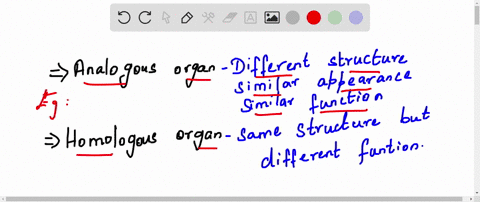 ⇒ Analogous organ - Different structure
similar appearance
Eg: similar function
⇒ Homologous organ - same structure but
different funtion.